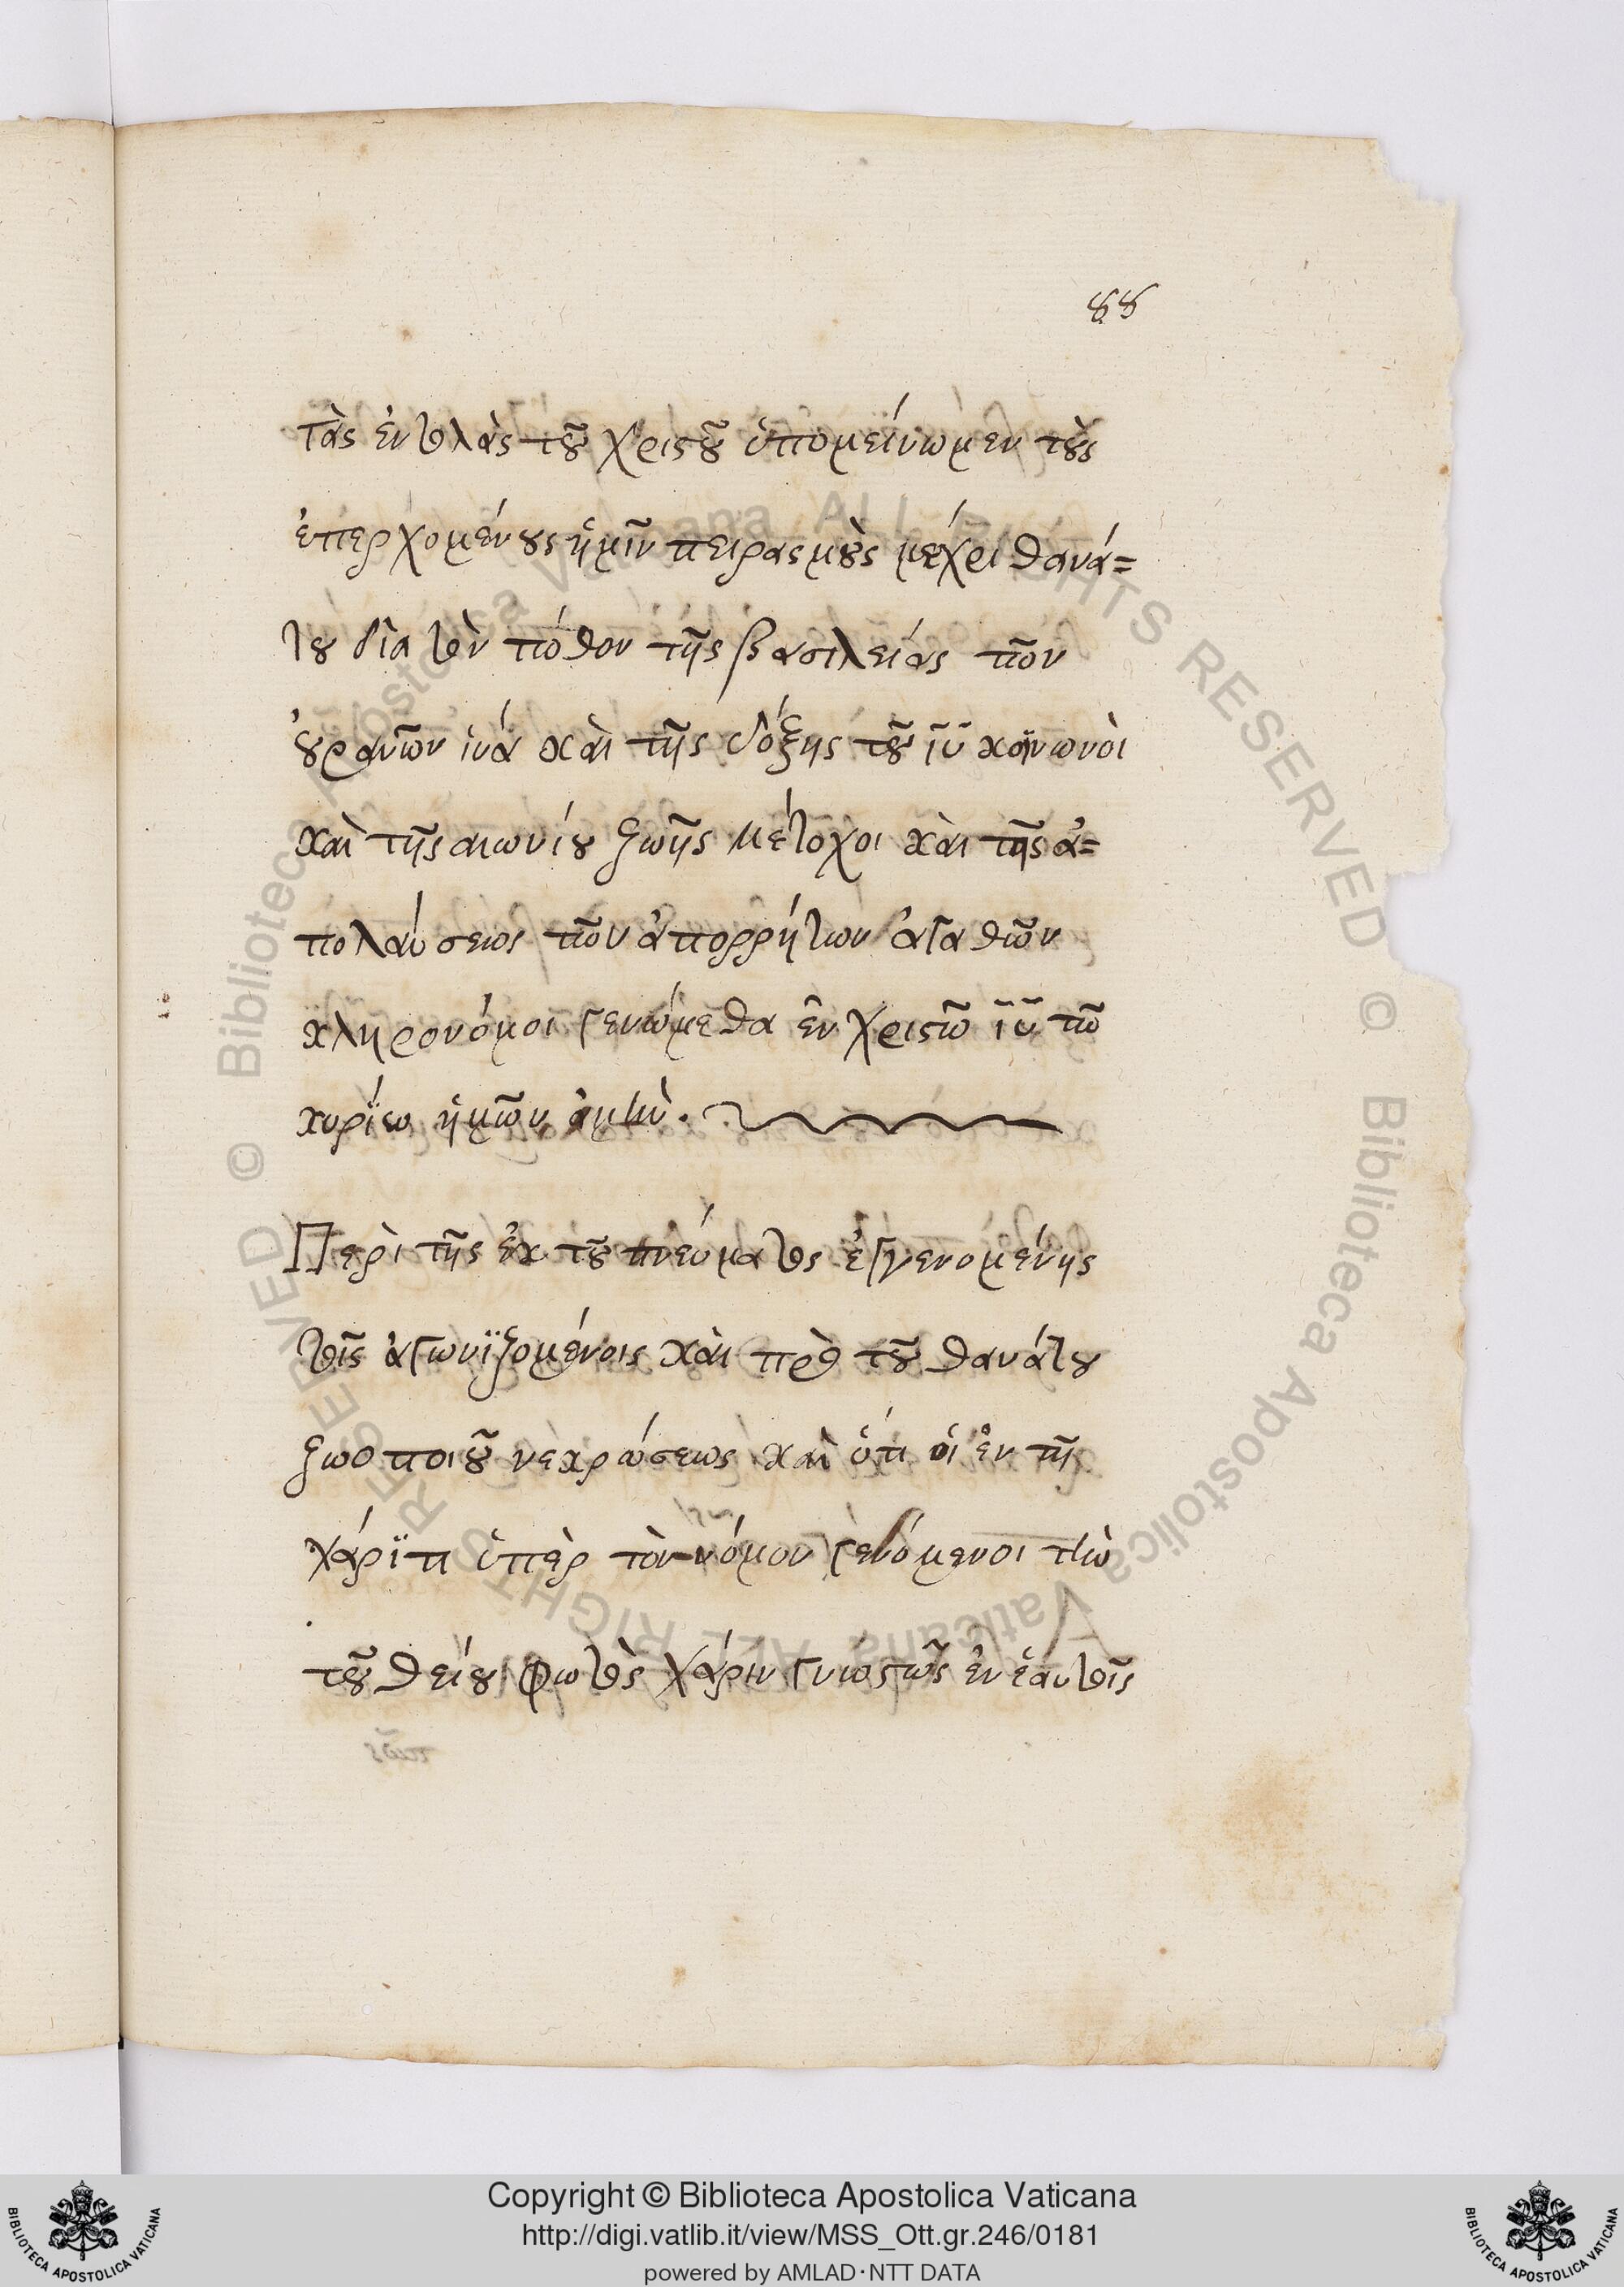 88
τὰς ἐντολὰς τοῦ χριστοῦ ὑπομείνωμεν τοὺς
ἐπερχομένους ἡμῖν πειρασμοὺς μέχρι θανά=
του δϊα τὸν πόθον τῆς βασιλείας τῶν
ὀυρανῶν ἱνά καὶ τῆς δόξης τοῦ ιυ κοϊνωνοὶ
καὶ τῆς αιωνίου ζωῆς μέτοχοι καὶ τῆς ἀ=
πολαύσεως τῶν ἀπορρήτων ἀγαθῶν
κληρονόμοι γενώμεθα ἐν χριστῶ ιυ τῶ
κυρίω ἡμῶν ἀμὴν.
Περὶ τῆς ἐκ τοῦ πνεύματος ἐγγενομένης
τοῖς ἀγωνϊζομένοις καὶ πρὸ τοῦ θανάτου
ζωοποιοῦ νεκρώσεως καὶ ὅτι οἱ ἐν τῆ
χάρϊτι ὑπὲρ τὸν νόμον γενόμενοι τὴν
τοῦ θείου φωτὸς χάριν γνωστῶς ἐν ἑαυτοῖς
Copyright © Biblioteca Apostolica Vaticana
http://digi.vatlib.it/view/MSS_Ott.gr.246/0181
powered by AMLAD·NTT DATA
BIBLIOTECA APOSTOLICA VATICANA
BIBLIOTECA APOSTOLICA VATICANA
© Biblioteca Apostolica Vaticana ALL RIGHTS RESERVED
© Biblioteca Apostolica Vaticana ALL RIGHTS RESERVED